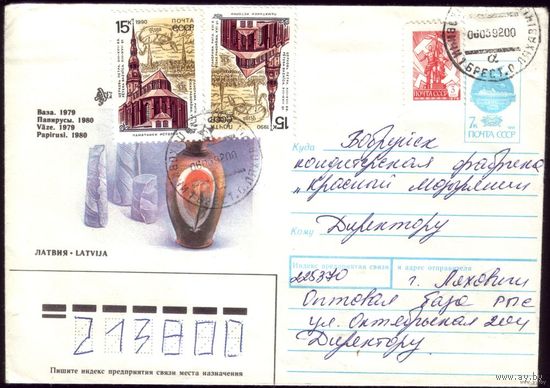 15к 1990
ПОЧТА
СССР
ПАМЯТНИКИ ИСТОРИИ
15к 1990
ПОЧТА
СССР
ПАМЯТНИКИ ИСТОРИИ
ПОЧТА СССР
7к ПОЧТА СССР
06039200
БРЕСТ. О.
06039200
Ваза. 1979
Папирусы. 1980
Vāze. 1979
Papirusi. 1980
ЛАТВИЯ • LATVIJA
Куда Бобруйск
кондитерская фабрика
"Красный
Кому Директору
Индекс предприятия связи и адрес отправителя
225370 г. Ляховичи
Оптовая база РПС
ул. Октябрьская 204
Директору
213800
Пишите индекс предприятия связи места назначения
www.ay.by